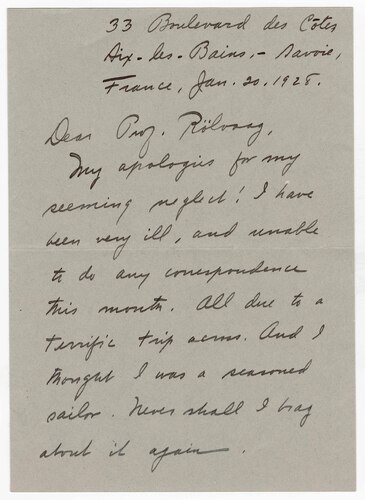 33 Boulevard des Côtes
Aix-les-Bains, - Savoie,
France, Jan. 20, 1928.
Dear Prof. Rölvaag,
My apologies for my
seeming neglect! I have
been very ill, and unable
to do any correspondence
this month. All due to a
terrific trip across. And I
thought I was a seasoned
sailor. Never shall I brag
about it again.